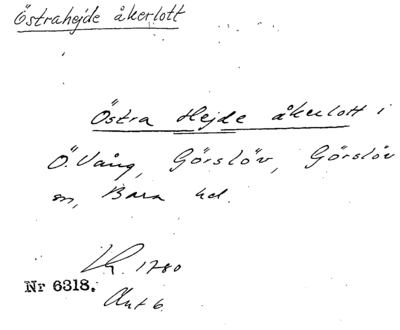 Östrahejde åkerlott
Östra Hejde åkerlott i
Ö. Vång, Görslöv, Görslöv
sn, Bara hd.
1780
Nr 6318.
Akt 6